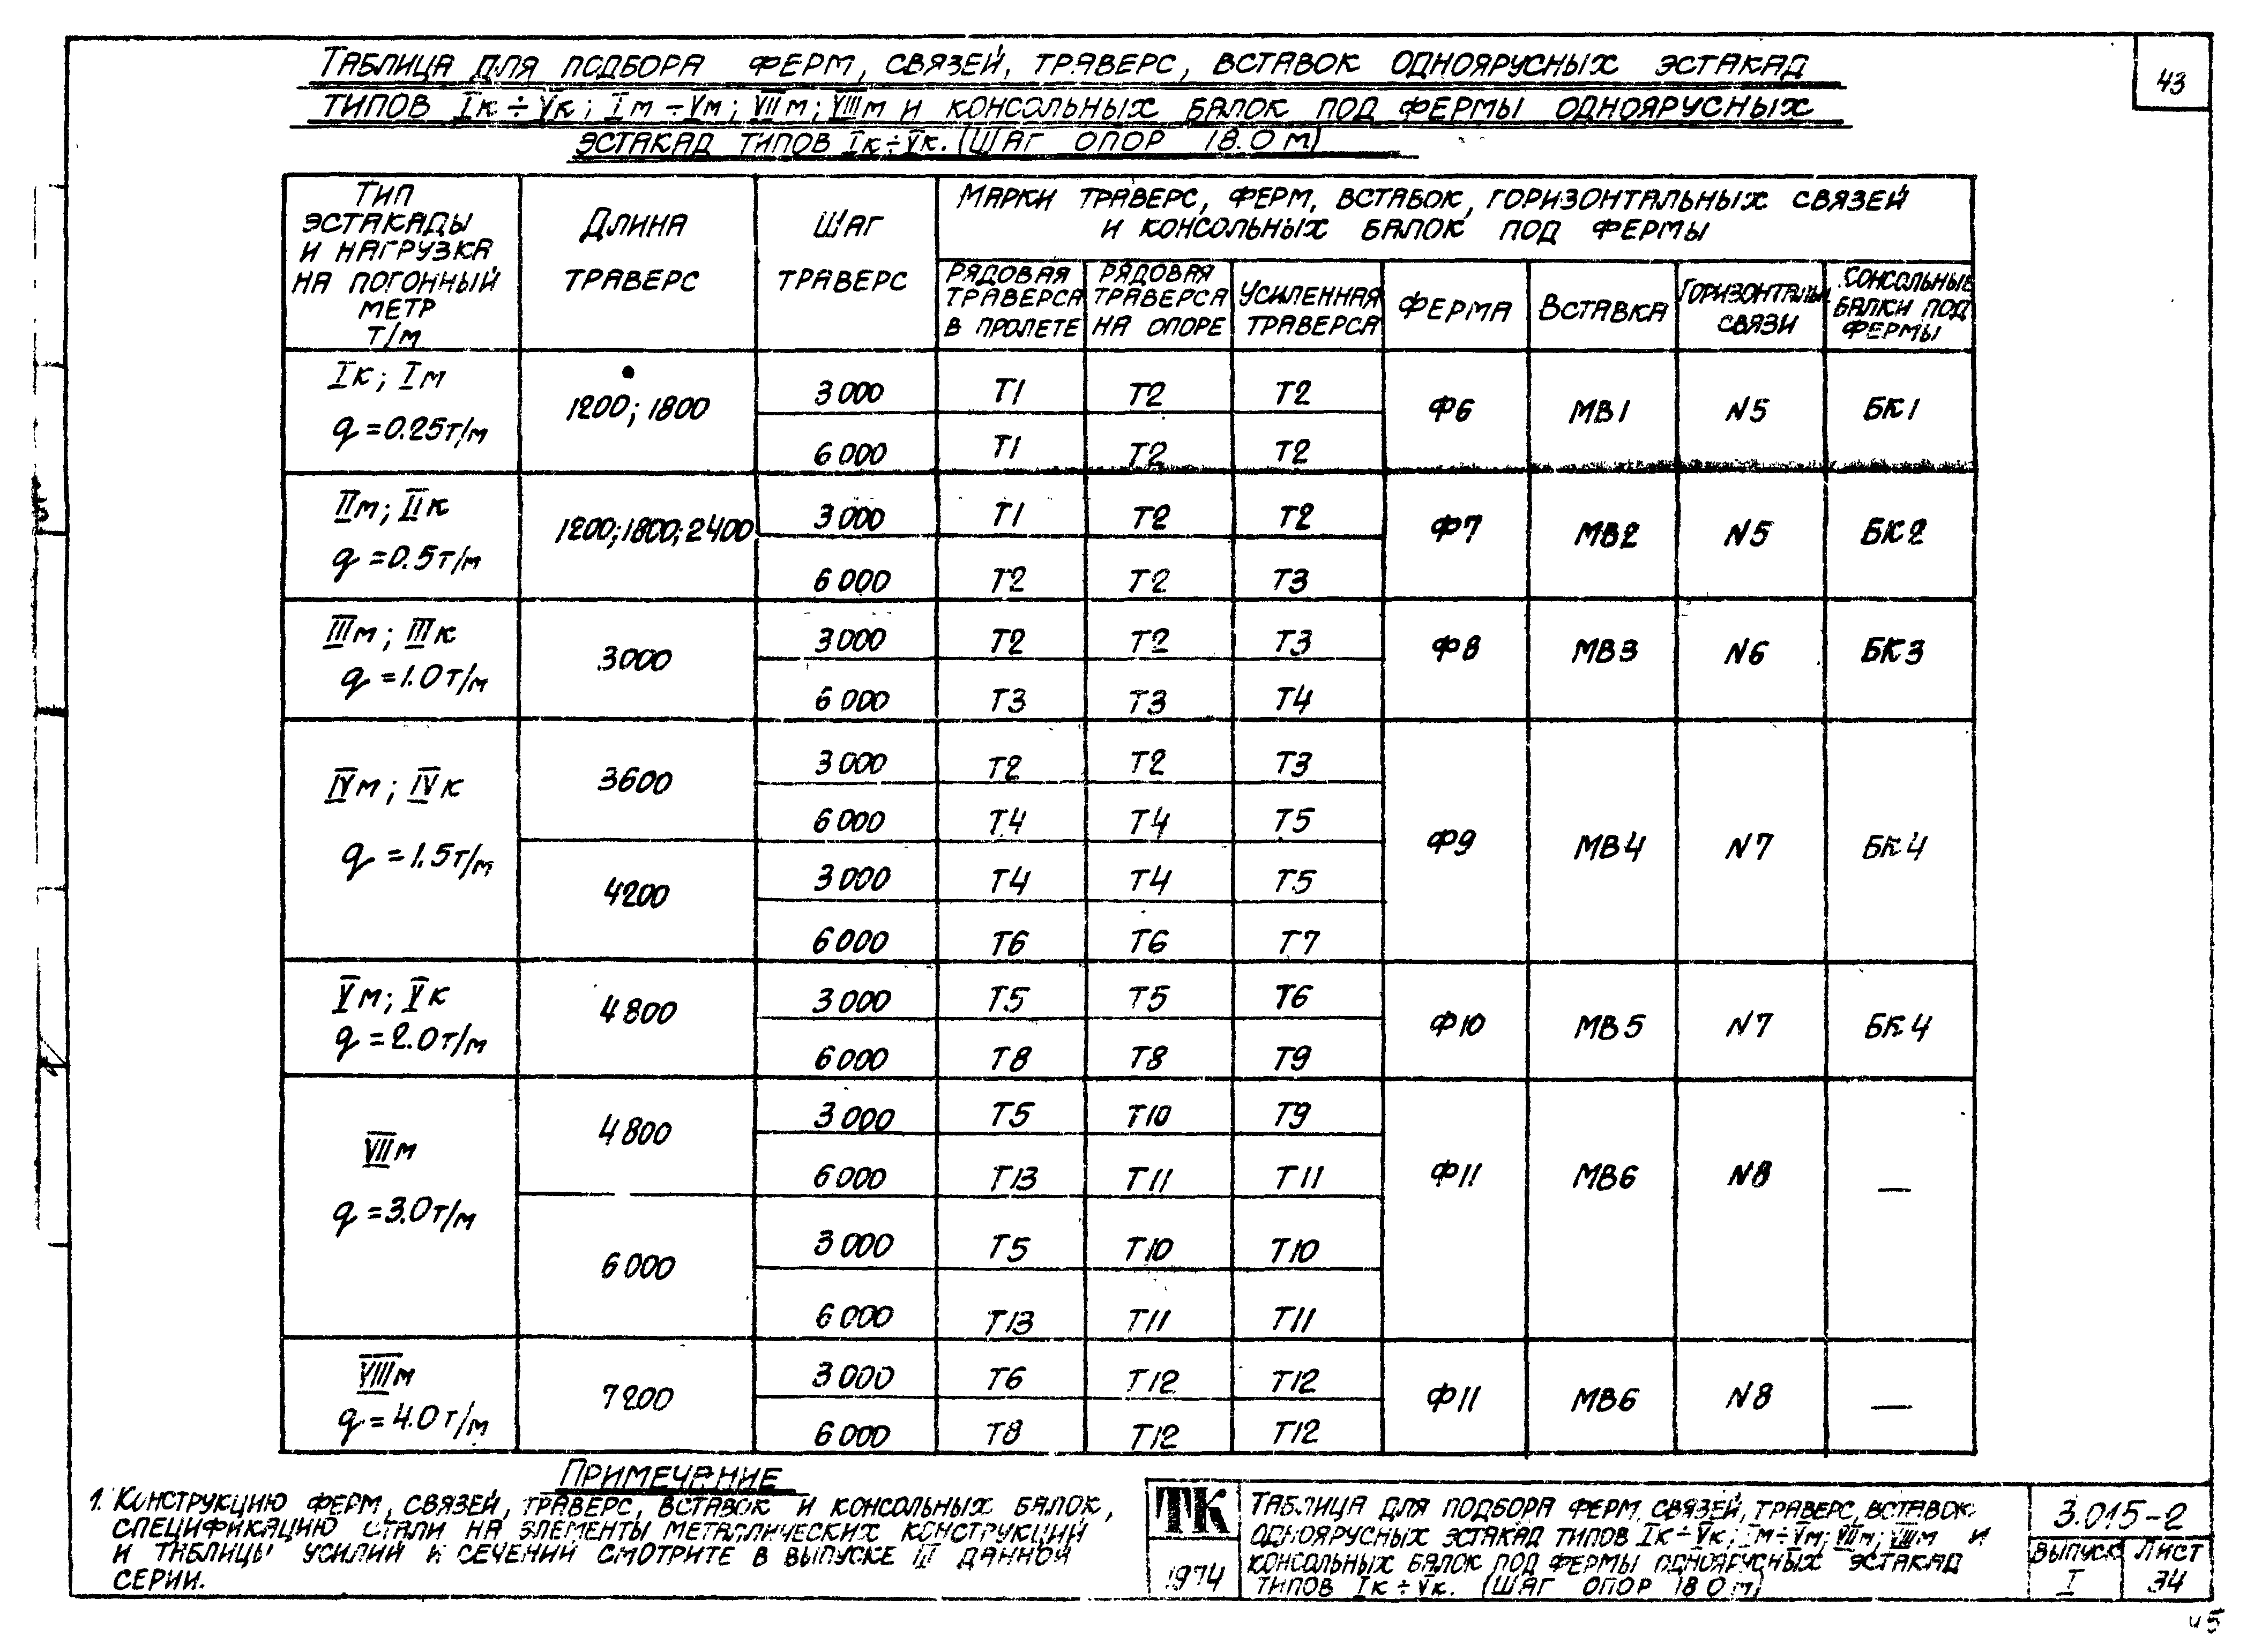 43
Таблица для подбора ферм, связей, траверс, вставок одноярусных эстакад
типов Iк÷Vк; Iм÷Vм; VIIм; VIIIм и консольных балок под фермы одноярусных
эстакад типов Iк÷Vк. (шаг опор 18.0 м)
Тип эстакады и нагрузка на погонный метр т/м
Длина траверс
Шаг траверс
Марки траверс, ферм, вставок, горизонтальных связей
и консольных балок под фермы
Рядовая траверса в пролете
Рядовая траверса на опоре
Усиленная траверса
Ферма
Вставка
Горизонтальн. связи
консольные балки под фермы
Iк; Iм
q=0.25т/м
1200; 1800
3000 Т1 Т2 Т2
6000 Т1 Т2 Т2
Ф6 МВ1 N5 БК1
IIм; IIк
q=0.5т/м
1200; 1800; 2400
3000 Т1 Т2 Т2
6000 Т2 Т2 Т3
Ф7 МВ2 N5 БК2
IIIм; IIIк
q=1.0т/м
3000
3000 Т2 Т2 Т3
6000 Т3 Т3 Т4
Ф8 МВ3 N6 БК3
IVм; IVк
q=1.5т/м
3600
3000 Т2 Т2 Т3
6000 Т4 Т4 Т5
4200
3000 Т4 Т4 Т5
6000 Т6 Т6 Т7
Ф9 МВ4 N7 БК4
Vм; Vк
q=2.0т/м
4800
3000 Т5 Т5 Т6
6000 Т8 Т8 Т9
Ф10 МВ5 N7 БК4
VIIм
q=3.0т/м
4800
3000 Т5 Т10 Т9
6000 Т13 Т11 Т11
6000
3000 Т5 Т10 Т10
6000 Т13 Т11 Т11
Ф11 МВ6 N8 —
VIIIм
q=4.0т/м
7200
3000 Т6 Т12 Т12
6000 Т8 Т12 Т12
Ф11 МВ6 N8 —
Примечание
1. Конструкцию ферм, связей, траверс, вставок и консольных балок,
спецификацию стали на элементы металлических конструкций
и таблицы усилий и сечений смотрите в выпуске III данной
серии.
ТК
1974
Таблица для подбора ферм, связей, траверс, вставок
одноярусных эстакад типов Iк÷Vк; Iм÷Vм; VIIм; VIIIм и
консольных балок под фермы одноярусных эстакад
типов Iк÷Vк. (шаг опор 18 0 м)
3.015-2
выпуск I
лист 34
45